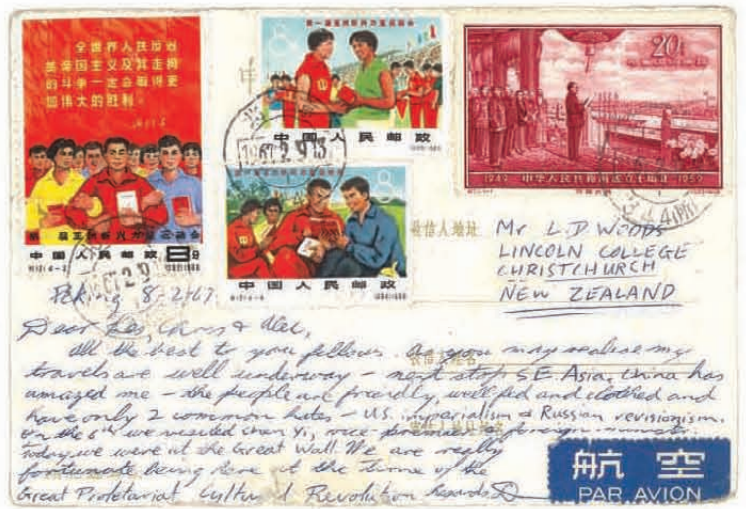 全世界人民反对
美帝国主义及其走狗
的斗争一定会取得更
加伟大的胜利。
毛泽东
第一届亚洲新兴力量运动会
8分
中国人民邮政
纪121·4-2 (382) 1966
第一届亚洲新兴力量运动会
8
中国人民邮政
1967.2.9.13
第一届亚洲新兴力量运动会
8
中国人民邮政
20分
1949 中华人民共和国成立十周年 1959
收信人地址
Mr L.D WOODS
LINCOLN COLLEGE
CHRISTCHURCH
NEW ZEALAND
Peking 8-2-67
Dear Les, Chris & Alec,
All the best to you fellows. As you may realise my
travels are well underway – next stop S.E. Asia. China has
amazed me – the people are friendly, well fed and clothed and
have only 2 common hates – U.S. imperialism & Russian revisionism.
On the 6th we visited Chen Yi, vice premier & foreign minister.
Today we were at the Great Wall. We are really
fortunate being here at the time of the
Great Proletariat Cultural Revolution Regards
航空
PAR AVION